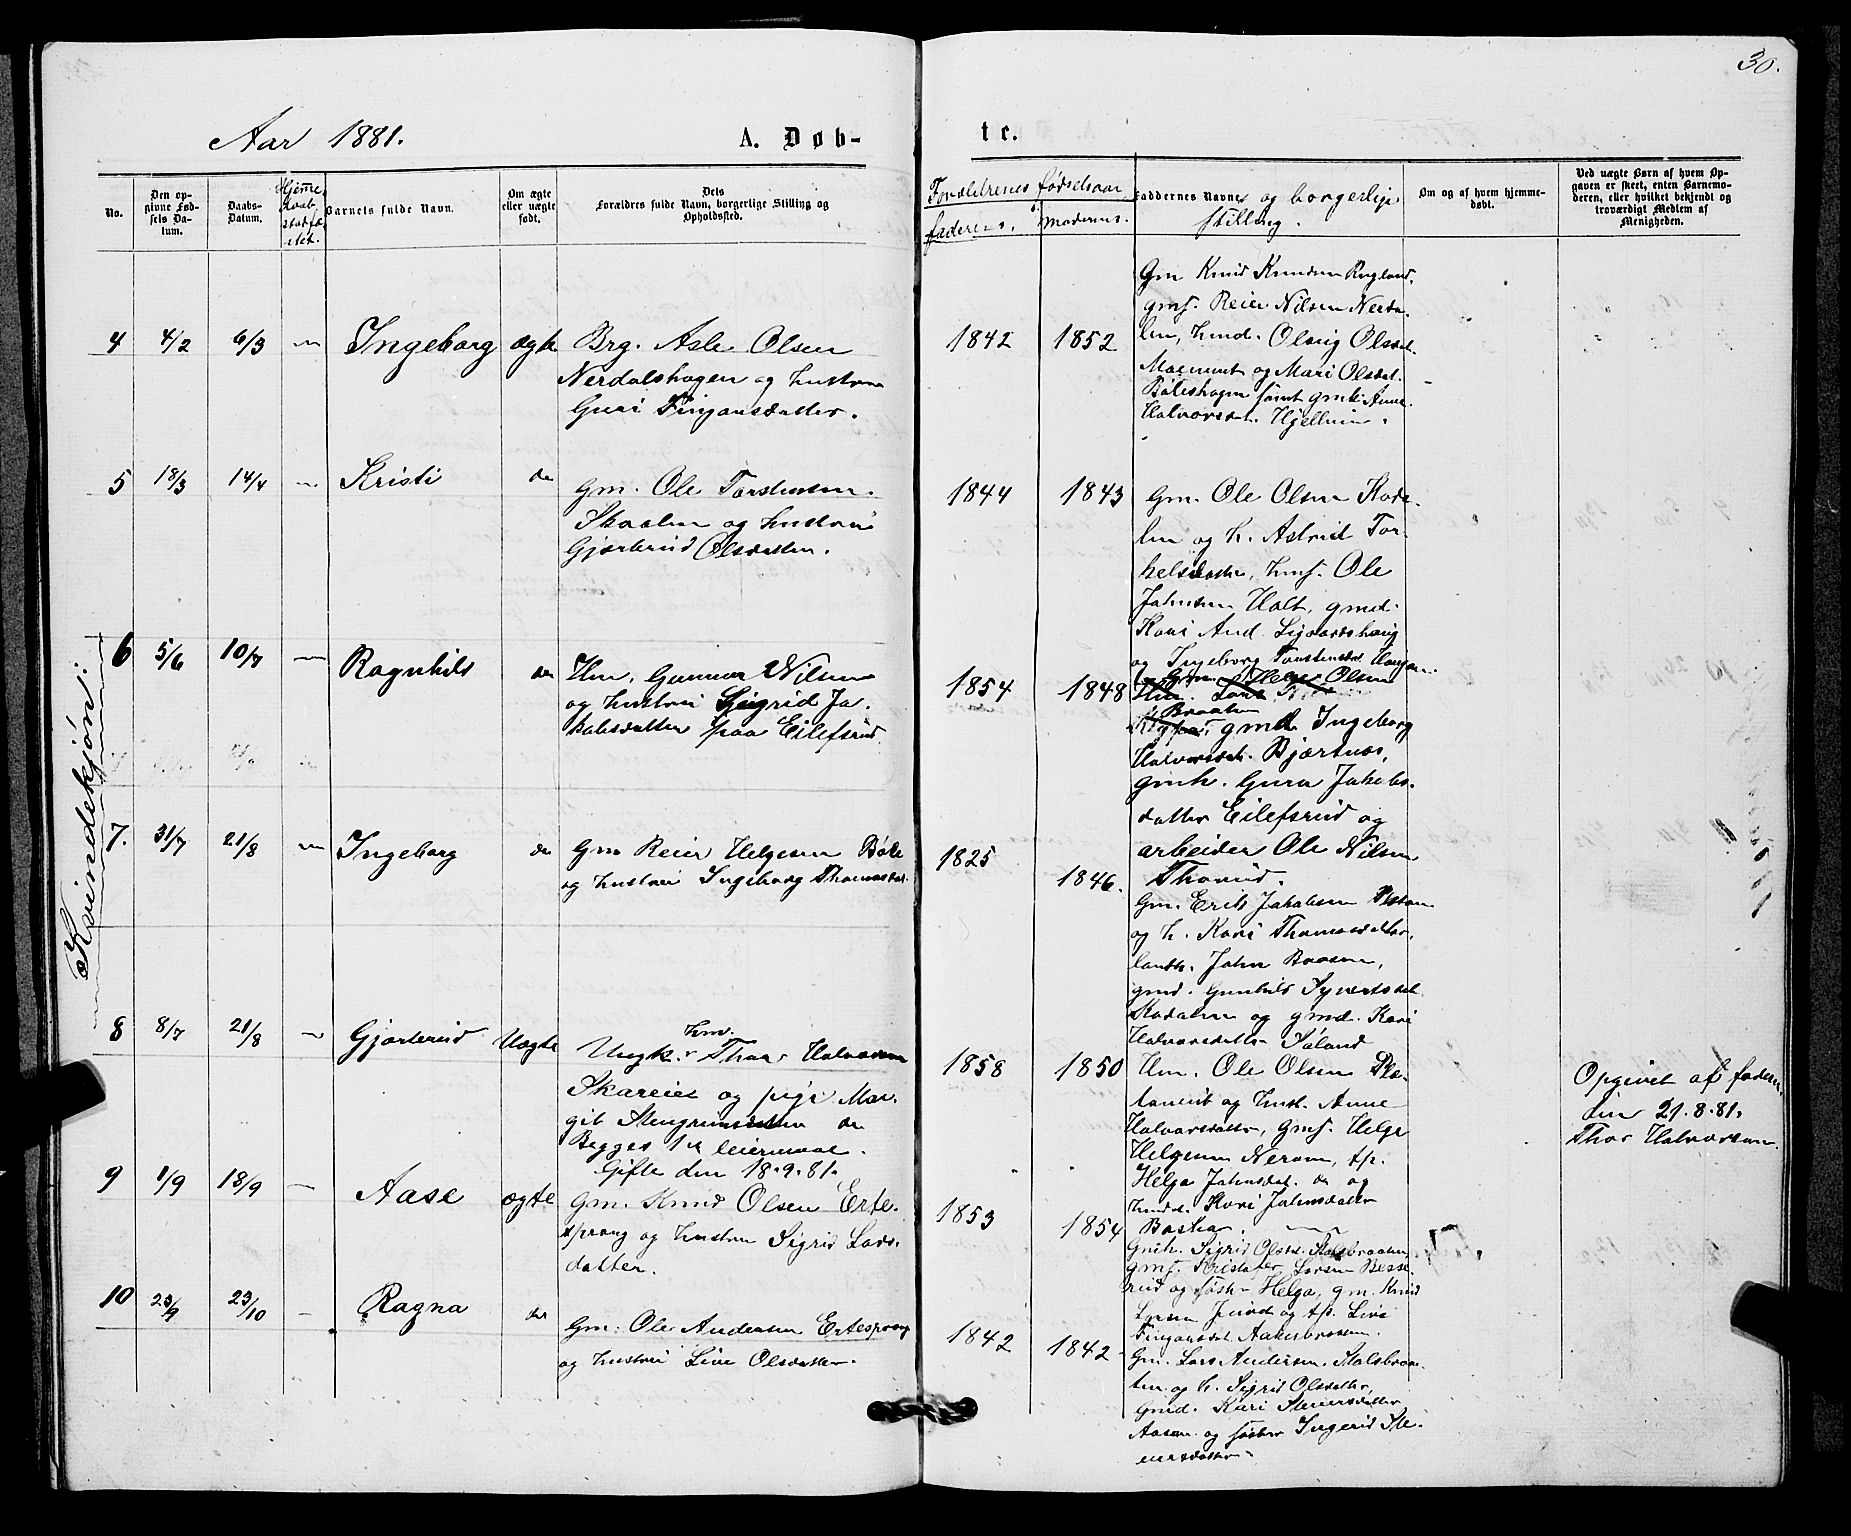 30.
Aar 1881.
A. Døb-
te.
No.
Den op-
givne Fød-
sels Da-
tum.
Daabs-
Datum.
Hjemme
daab
stadfæ-
stet.
Barnets fulde Navn.
Om ægte
eller uægte
født.
Dets
Forældres fulde Navn, borgerlige Stilling og
Opholdssted.
Forældrenes fødselsaar
faderens.
moderens.
Faddernes Navne og borgerlige
stilling.
Om og af hvem hjemme-
døbt.
Ved uægte Børn af hvem Op-
gaven er skeet, enten Barnemo-
deren, eller hvilket bekjendt og
troværdigt Medlem af
Menigheden.
Kvindekjøn:
4 4/2 6/3 Ingeborg ægte
Brg. Asle Olsen
Nerdalshagen og hustru
Guri Finganсdatter.
1842 1852
Gm Knud Knudsen Rugland.
gmf. Reier Nilsen Nerda-
len, hmd. Olaug Olsdat.
og Mari Olsdat.
Bøleshagen samt gmk. Anne
Halvorsdat. Hjellum.
5 18/3 14/4 Kristi do
Gm. Ole Torstensen
Skaalen og hustru
Gjærterud Olsdatter.
1844 1843
Gm. Ole Olsen Roda-
len og h. Astrid Tor-
kelsdatter, hmf. Ole
Johnsen Holt, gmd.
Kari And. Sigvartshaug
og Ingeborg Torstensdat. Haugen.
6 5/6 10/7 Ragnhild do
Hm. Gunnar Nilsen
og hustru Sigrid Ja-
kobsdatter paa Eilefsrud
1854 1848
Gm. Helge Olsen
Braaten
gmd. Ingeborg
Halvorsdat. Bjærtnæs,
gmk. Guro Jakobs-
datter Eilefsrud og
arbeider Ole Nilsen
Thorud.
7. 31/7 21/8 Ingeborg do
Gm Reier Helgesen Bøle
og hustru Ingeborg Thomasdat.
1825
1846.
Gm. Erik Jakobsen
og h. Kari Thomasdatter,
landh. John Braaten,
gmd. Gunhild Syvertsdat
Rodalen og gmd. Kari
Halvorsdatter Søland
8 8/7 21/8 Gjærterud Uægte
hm.
Ungk. Thor Halvorsen
Skareiet og pige Mar-
git Stengrimsdatter do
Begges 1ste leiermaal.
Gifte den 18.9.81.
1858 1850
Hm. Ole Olsen
og hust. Anne
Halvorsdatter, gmf. Helge
Helgesen Neraen, tp.
Helga Johnsdat. do og
hmdt. Kari Johnsdatter
Opgivet af faderen
den 21.8.81.
Thor Halvorsen
9 1/9 18/9 Aase ægte
Gm. Knud Olsen Erte-
sprang og hustru Sigrid Lars-
datter.
1853
1854
Gmk. Sigrid Olsdat. Stalsbraaten,
gmf. Kristofer Larsen Besse-
rud og søster Helga, gm. Knud
Larsen Juvet og tp. Live
Fingarsdat. Aakerbraaten.
10 23/9 23/10 Ragna do
Gm. Ole Andersen Ertesprang
og hustru Live Olsdatter.
1842 1842
Gm. Lars Andersen Stalsbraa-
ten og h. Sigrid Olsdatter,
Gmd. Kari Steinersdatter
Aasen og søster Ingerid Ste-
nersdatter